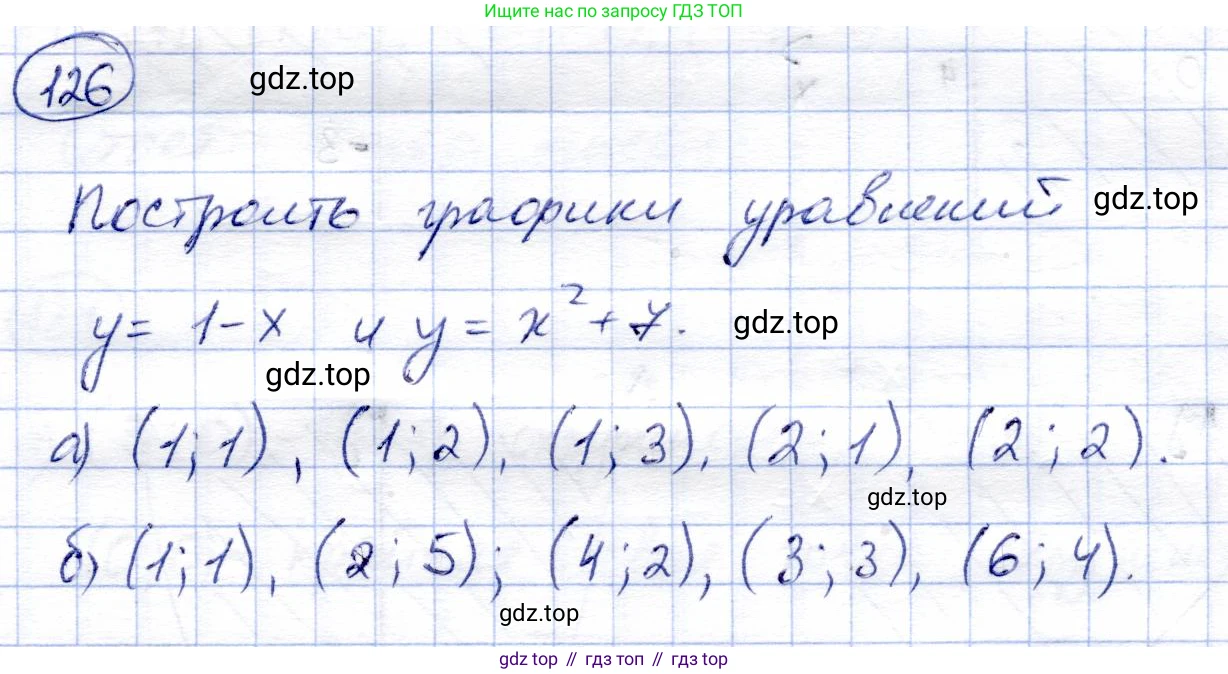 Ищите нас по запросу ГДЗ ТОП
126 gdz.top
Построить графики уравнений gdz.top
y = 1 - x и y = x² + 7. gdz.top
gdz.top
а) (1; 1), (1; 2), (1; 3), (2; 1), (2; 2).
gdz.top
б) (1; 1), (2; 5); (4; 2), (3; 3), (6; 4).
gdz.top
gdz top // гдз топ // гдз top